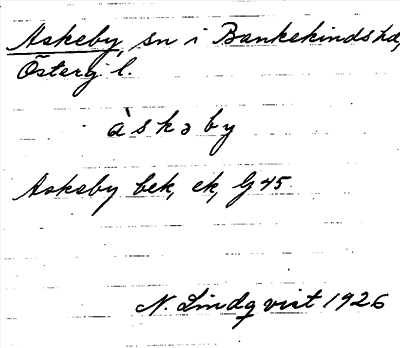 Askeby, sn i Bankekinds hd,
Österg l.
àskəby
Askeby bek, ek, G 45
N. Lindqvist 1926